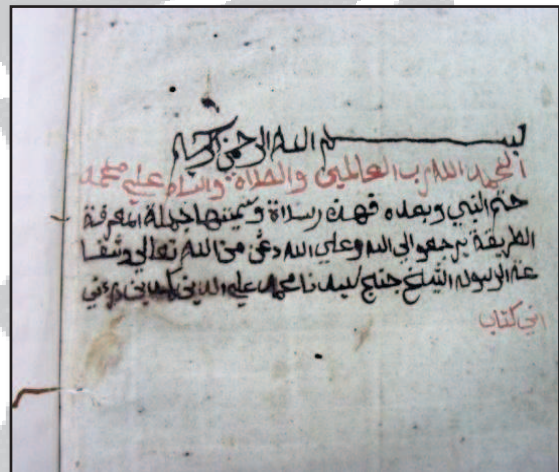 بسم الله الرحمن الرحيم
الحمد الله رب العالمين والصلاة والسلام علي محمد
ختم النبي وبعده فهذه رسلاة وسميتها جملة المعرفة
الطريقة يرجعو الي الله وعلي الله دعى من الله تعالي وشفا
عة الرسوله الشيخ لسيدنا محمد علي الدين
كتاب